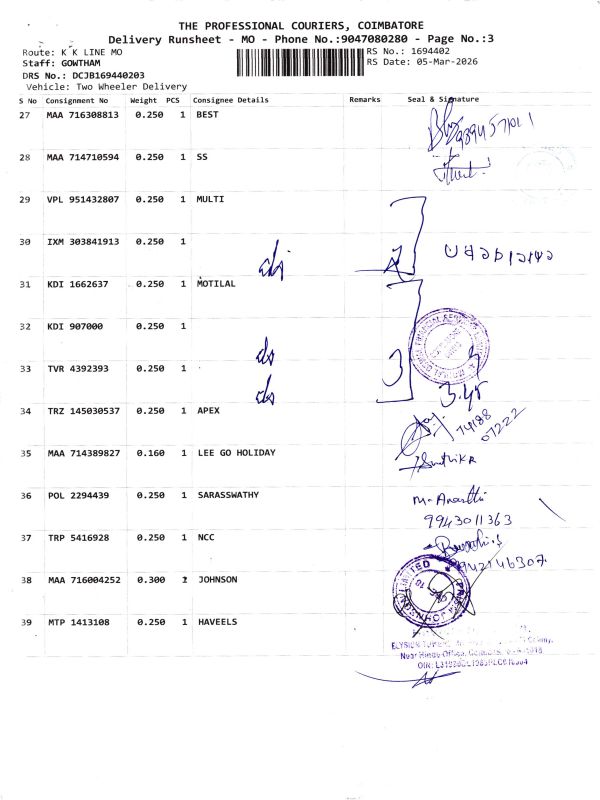 THE PROFESSIONAL COURIERS, COIMBATORE
Delivery Runsheet - MO - Phone No.:9047080280 - Page No.:3
Route: K K LINE MO
RS No.: 1694402
Staff: GOWTHAM
RS Date: 05-Mar-2026
DRS No.: DCJB169440203
Vehicle: Two Wheeler Delivery
S No Consignment No Weight PCS Consignee Details Remarks Seal & Signature
27 MAA 716308813 0.250 1 BEST
28 MAA 714710594 0.250 1 SS
29 VPL 951432807 0.250 1 MULTI
30 IXM 303841913 0.250 1
31 KDI 1662637 0.250 1 MOTILAL
32 KDI 907000 0.250 1
33 TVR 4392393 0.250 1
3
3.45
34 TRZ 145030537 0.250 1 APEX
74188
07222
35 MAA 714389827 0.160 1 LEE GO HOLIDAY
36 POL 2294439 0.250 1 SARASSWATHY
9943011363
37 TRP 5416928 0.250 1 NCC
38 MAA 716004252 0.300 1 JOHNSON
39 MTP 1413108 0.250 1 HAVEELS